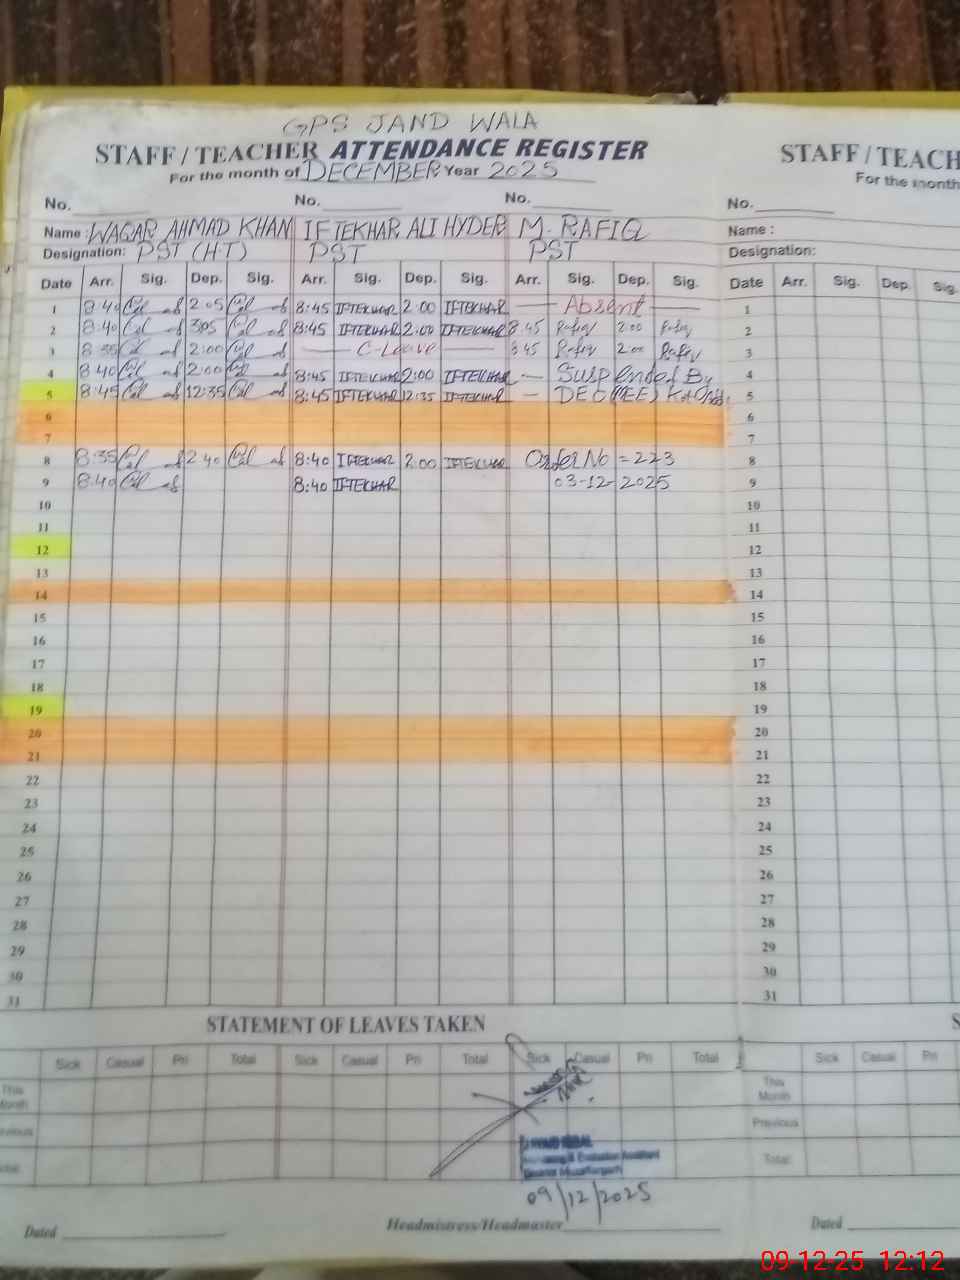 GPS JAND WALA
STAFF / TEACHER ATTENDANCE REGISTER
For the month of DECEMBER Year 2025
No. No. No.
Name : WAQAR AHMAD KHAN IFTEKHAR ALI HYDER M. RAFIQ
Designation: PST (H·T) PST PST
Date Arr. Sig. Dep. Sig. Arr. Sig. Dep. Sig. Arr. Sig. Dep. Sig.
1 8:40 2:05 8:45 IFTEKHAR 2:00 IFTEKHAR Absent
2 8:40 3:05 8:45 IFTEKHAR 2:00 IFTEKHAR 8:45 Rafiq 2:00 Rafiq
3 8:35 2:00 C-Leave 8:45 Rafiq 2:00 Rafiq
4 8:40 2:00 8:45 IFTEKHAR 2:00 IFTEKHAR — Suspended By
5 8:45 12:35 8:45 IFTEKHAR 12:35 IFTEKHAR — DEO(MEE)
6
7
8 8:35 2:40 8:40 IFTEKHAR 2:00 IFTEKHAR Order No = 223
9 8:40 8:40 IFTEKHAR 03-12-2025
10
11
12
13
14
15
16
17
18
19
20
21
22
23
24
25
26
27
28
29
30
31
STATEMENT OF LEAVES TAKEN
Sick Casual Pri Total Sick Casual Pri Total Sick Casual Pri Total
This Month
Evaluation Assistant
District Muzaffargarh
09/12/2025
Dated Headmistress/Headmaster
STAFF / TEACH
For the month
No.
Name :
Designation:
Date Arr. Sig. Dep. Sig.
1
2
3
4
5
6
7
8
9
10
11
12
13
14
15
16
17
18
19
20
21
22
23
24
25
26
27
28
29
30
31
S
Sick Casual Pri
This Month
Previous
Total:
Dated
09-12-25 12:12